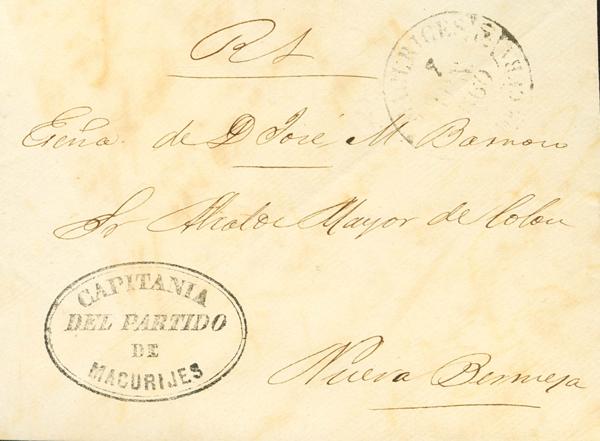 R S
de D José M Barroro
Sr Alcalde Mayor de Colon
CAPITANIA
DEL PARTIDO
DE
MACURIJES
Nueva Bermeja